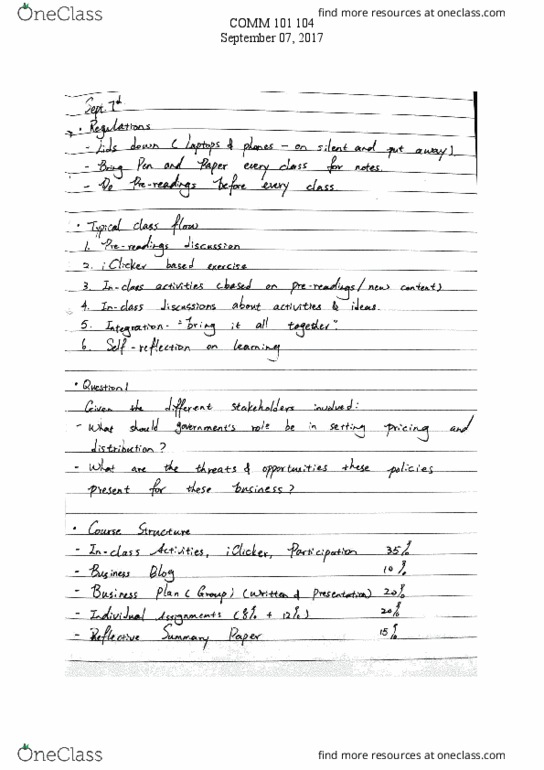 OneClass find more resources at oneclass.com
COMM 101 104
September 07, 2017
Sept 7th
• Regulations
- Lids down (laptops & phones - on silent and put away)
- Bring Pen and Paper every class for notes.
- Do Pre-readings before every class.
• Typical class flow
1. Pre-readings discussion
2. iClicker based exercise
3. In-class activities (based on pre-readings/new content)
4. In-class discussions about activities & ideas.
5. Integration- "bring it all together".
6. Self-reflection on learning
• Question 1
Given the different stakeholders involved:
- What should government's role be in setting pricing and
distribution?
- What are the threats & opportunities these policies
present for these business?
• Course Structure
- In-class Activities, iClicker, Participation 35%
- Business Blog 10%
- Business Plan (Group) (Written & Presentation) 20%
- Individual Assignments (8% + 12%) 20%
- Reflective Summary Paper 15%
OneClass find more resources at oneclass.com